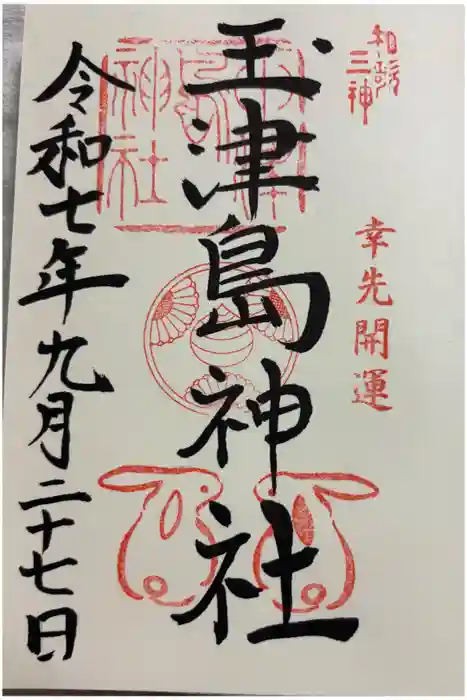 和歌
三神
幸先開運
玉津島神社
玉津島
神社
令和七年九月二十七日